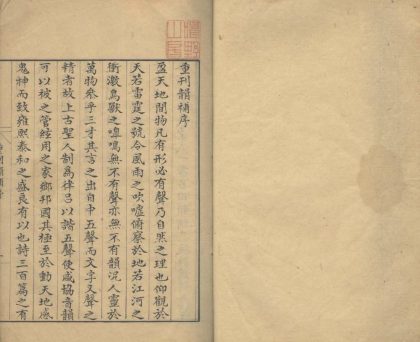 重刊韻補序
盈天地間物凡有形必有聲乃自然之理也仰觀於
天若雷霆之號令風雨之吹噓俯察於地若江河之
衝激鳥獸之嘷鳴無不有聲亦無不有韻況人靈於
萬物參乎三才其言之出自中五聲而文字又聲之
精者故上古聖人制為律呂以諧五聲使咸協音韻
可以被之管絃用之家鄉邦國其極至於動天地感
鬼神而致雍熙泰和之盛良有以也詩三百篇之有